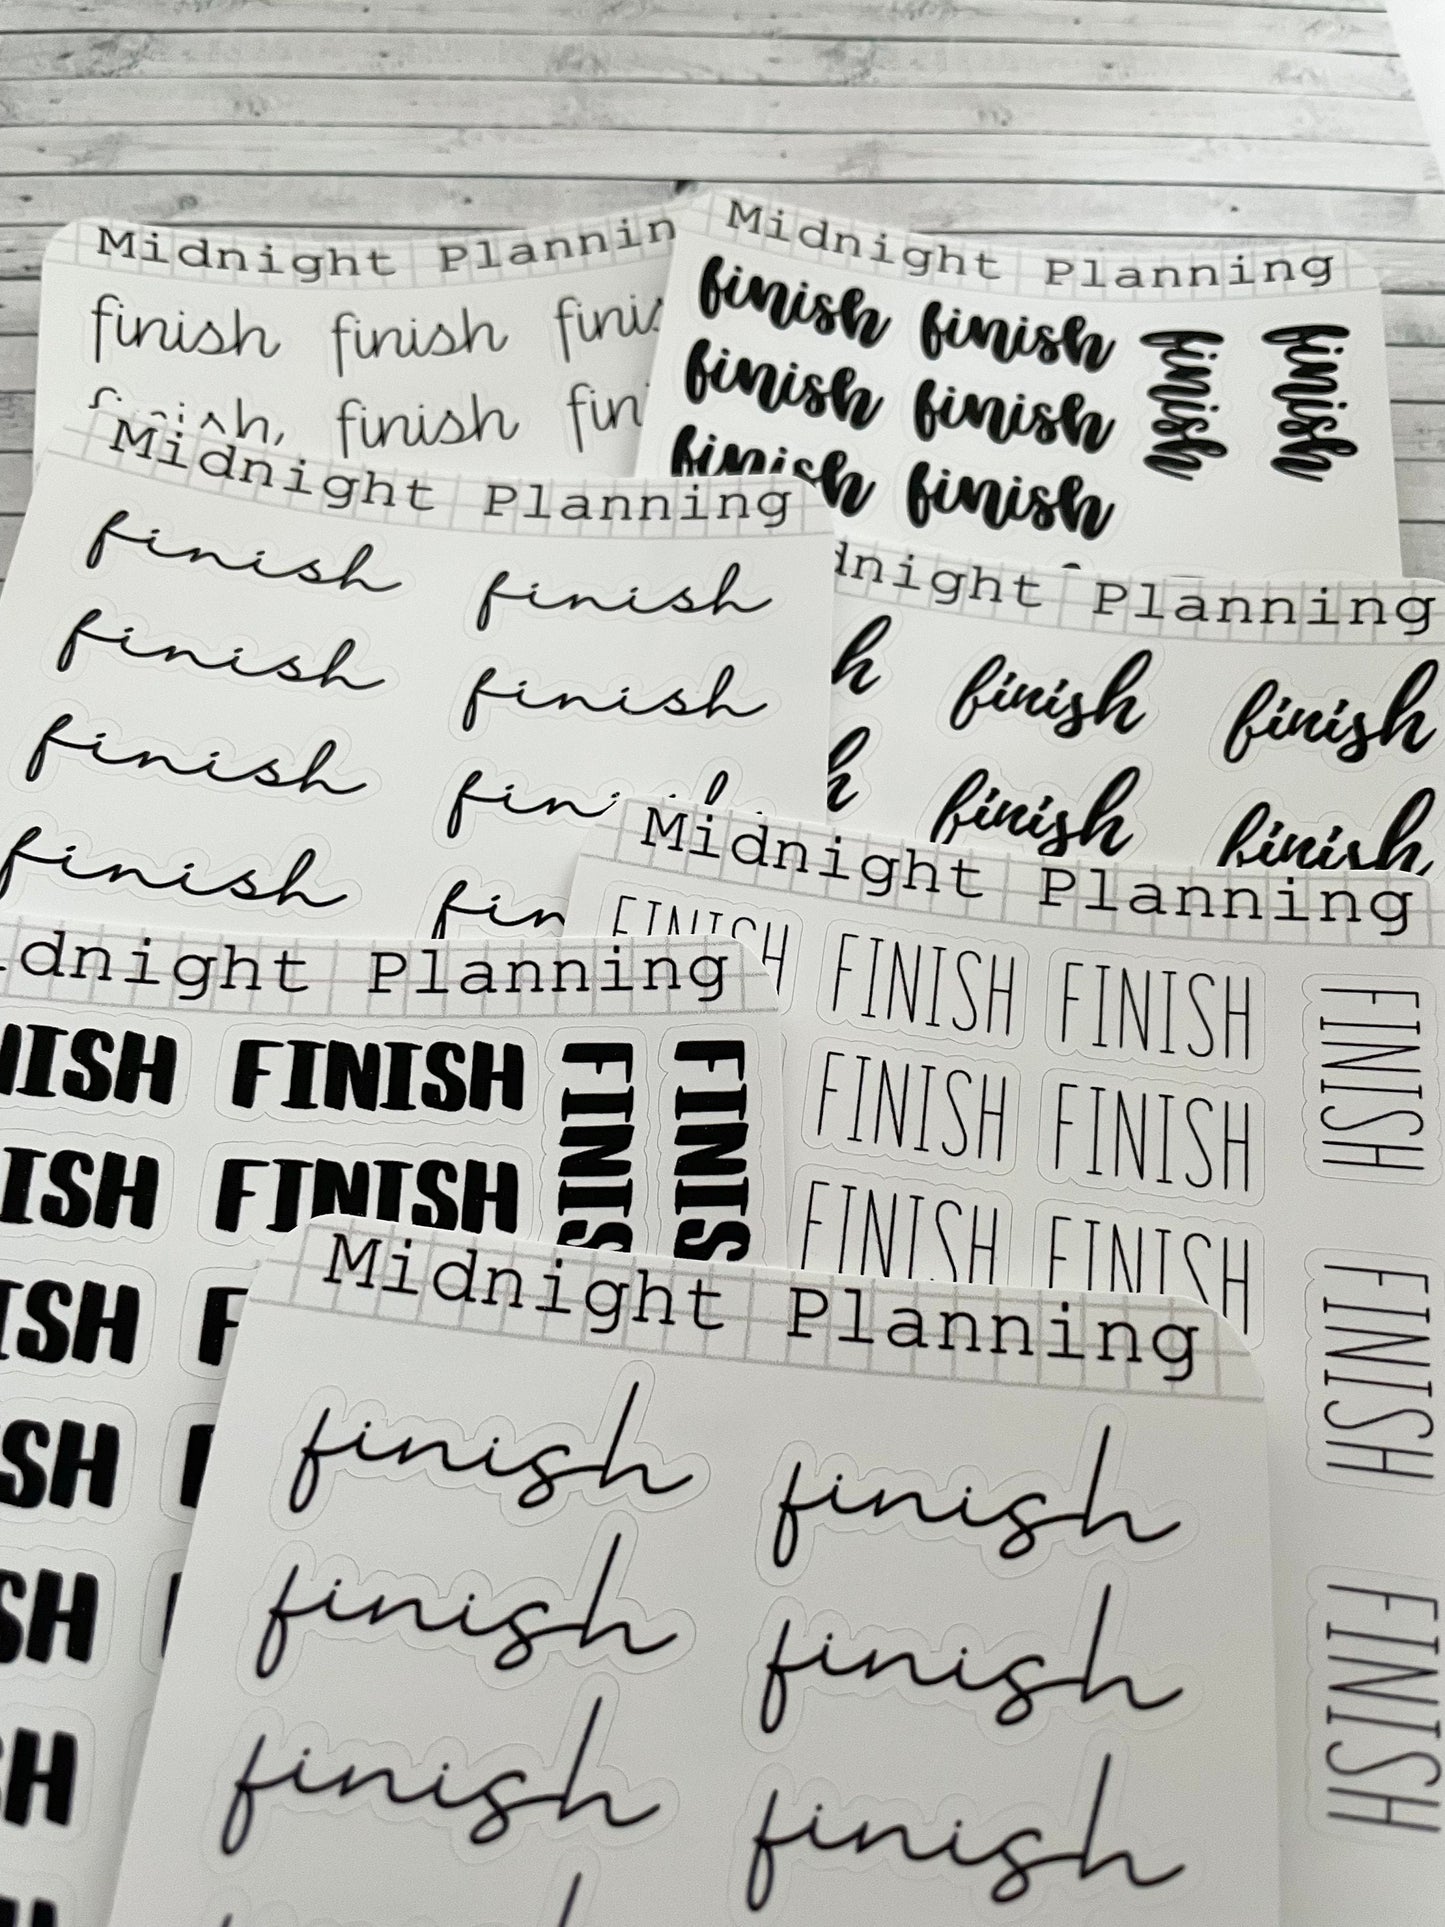 Midnight Plannin
finish finish
finish
Midnight Planning
finish finish finish finish
finish finish
finish finish
Midnight Planning
finish finish
finish finish
finish
finish
Planning
finish finish
finish finish
Midnight Planning
FINISH FINISH FINISH FINISH
FINISH FINISH
FINISH FINISH FINISH
FINISH
Planning
FINISH FINISH FINISH
FINISH
Midnight Planning
finish finish
finish finish
finish finish